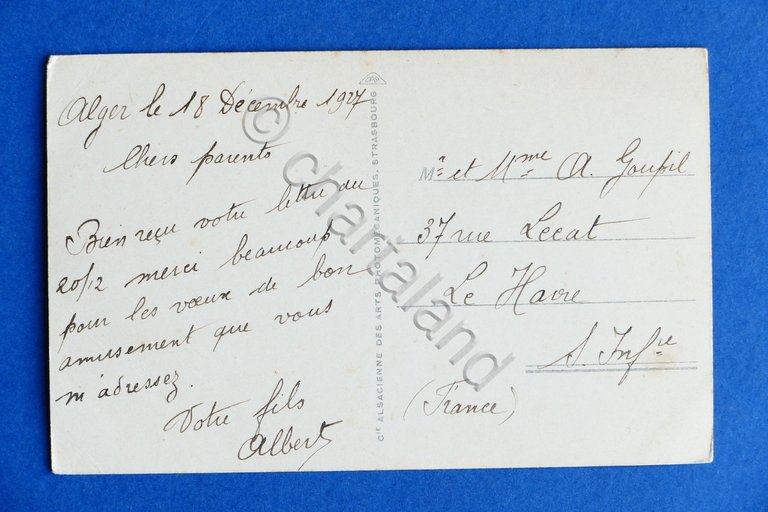 Alger le 18 Décembre 1927
Chers parents
Bien reçu votre lettre du
20/12 merci beaucoup
pour les vœux de bon
amusement que vous
m'adressez.
Votre fils
Albert
CAP
Cie ALSACIENNE DES ARTS PHOTOMÉCANIQUES, STRASBOURG
Mr et Mme A. Goupil
37 rue Lecat
Le Havre
S. Infre
(France)
© chartaland